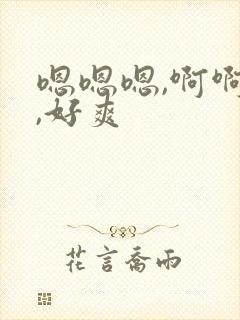 嗯嗯嗯,啊啊
,好爽
花言喬雨